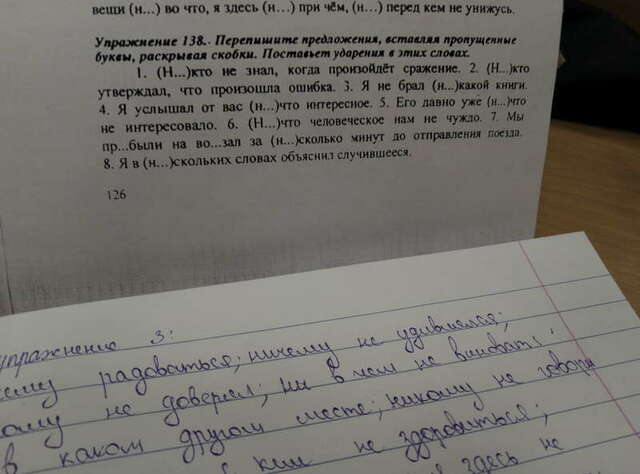 вещи (н...) во что, я здесь (н...) при чём, (н...) перед кем не унижусь.
Упражнение 138. Перепишите предложения, вставляя пропущенные
буквы, раскрывая скобки. Поставьте ударения в этих словах.
1. (Н...)кто не знал, когда произойдёт сражение. 2. (Н...)кто
утверждал, что произошла ошибка. 3. Я не брал (н...)какой книги.
4. Я услышал от вас (н...)что интересное. 5. Его давно уже (н...)что
не интересовало. 6. (Н...)что человеческое нам не чуждо. 7. Мы
пр...были на во...зал за (н...)сколько минут до отправления поезда.
8. Я в (н...)скольких словах объяснил случившееся.
126
упражнение 3:
радоваться; ничему не удивлялся;
не доверял; ни в чем не виноват;
в каком другом месте; никому не говори
кем не здороваться;
здесь не